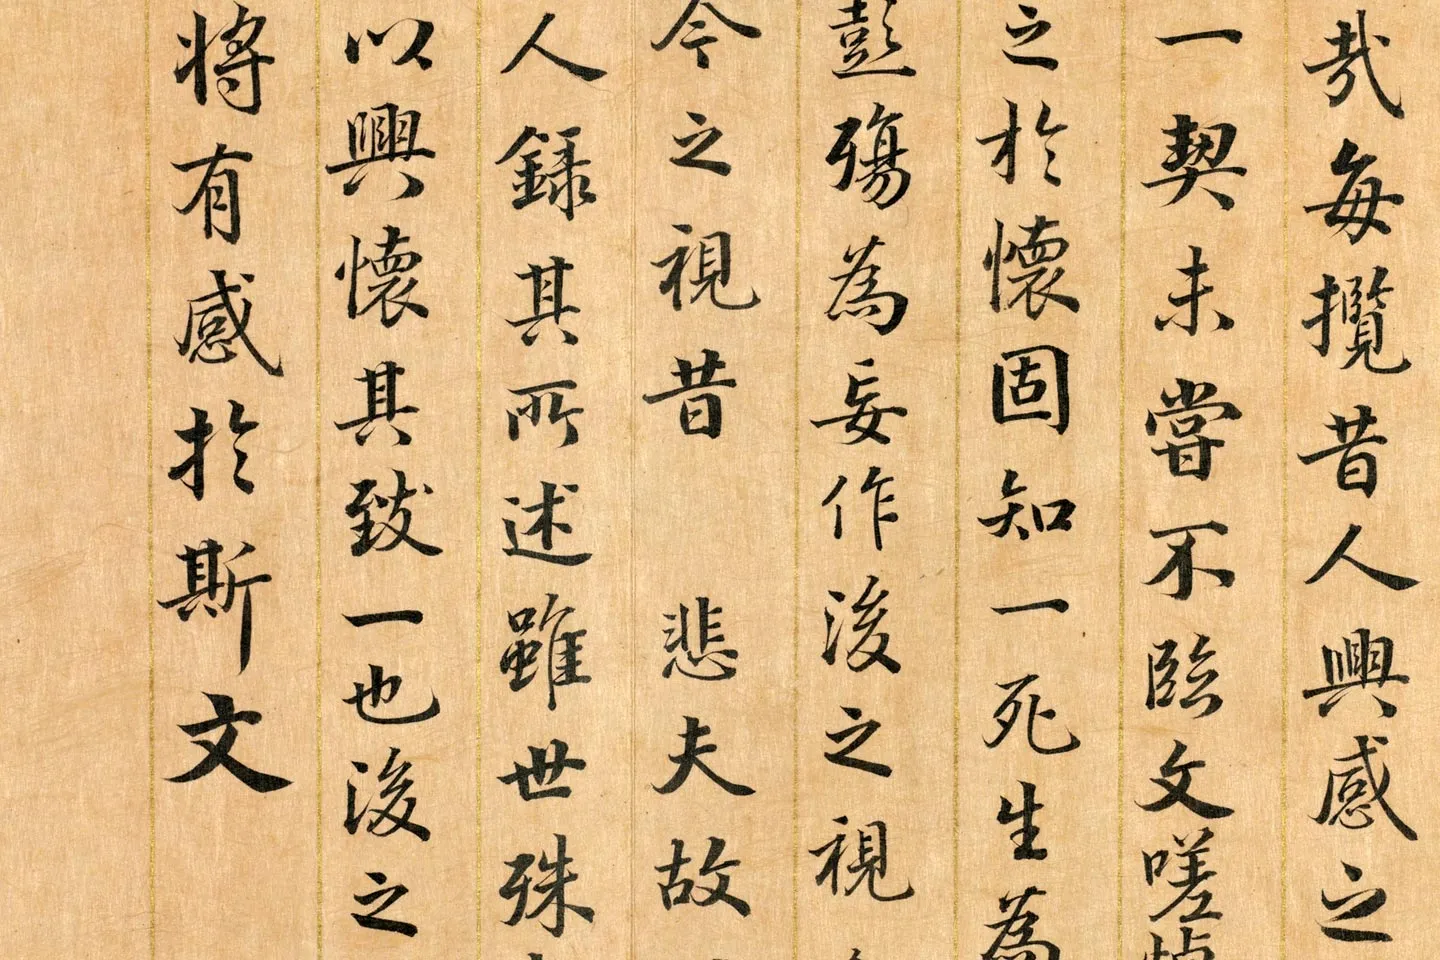 哉每攬昔人興感之
一契未嘗不臨文嗟悼
之於懷固知一死生為
彭殤為妄作後之視
今之視昔 悲夫故
人録其所述雖世殊
以興懷其致一也後之
將有感於斯文